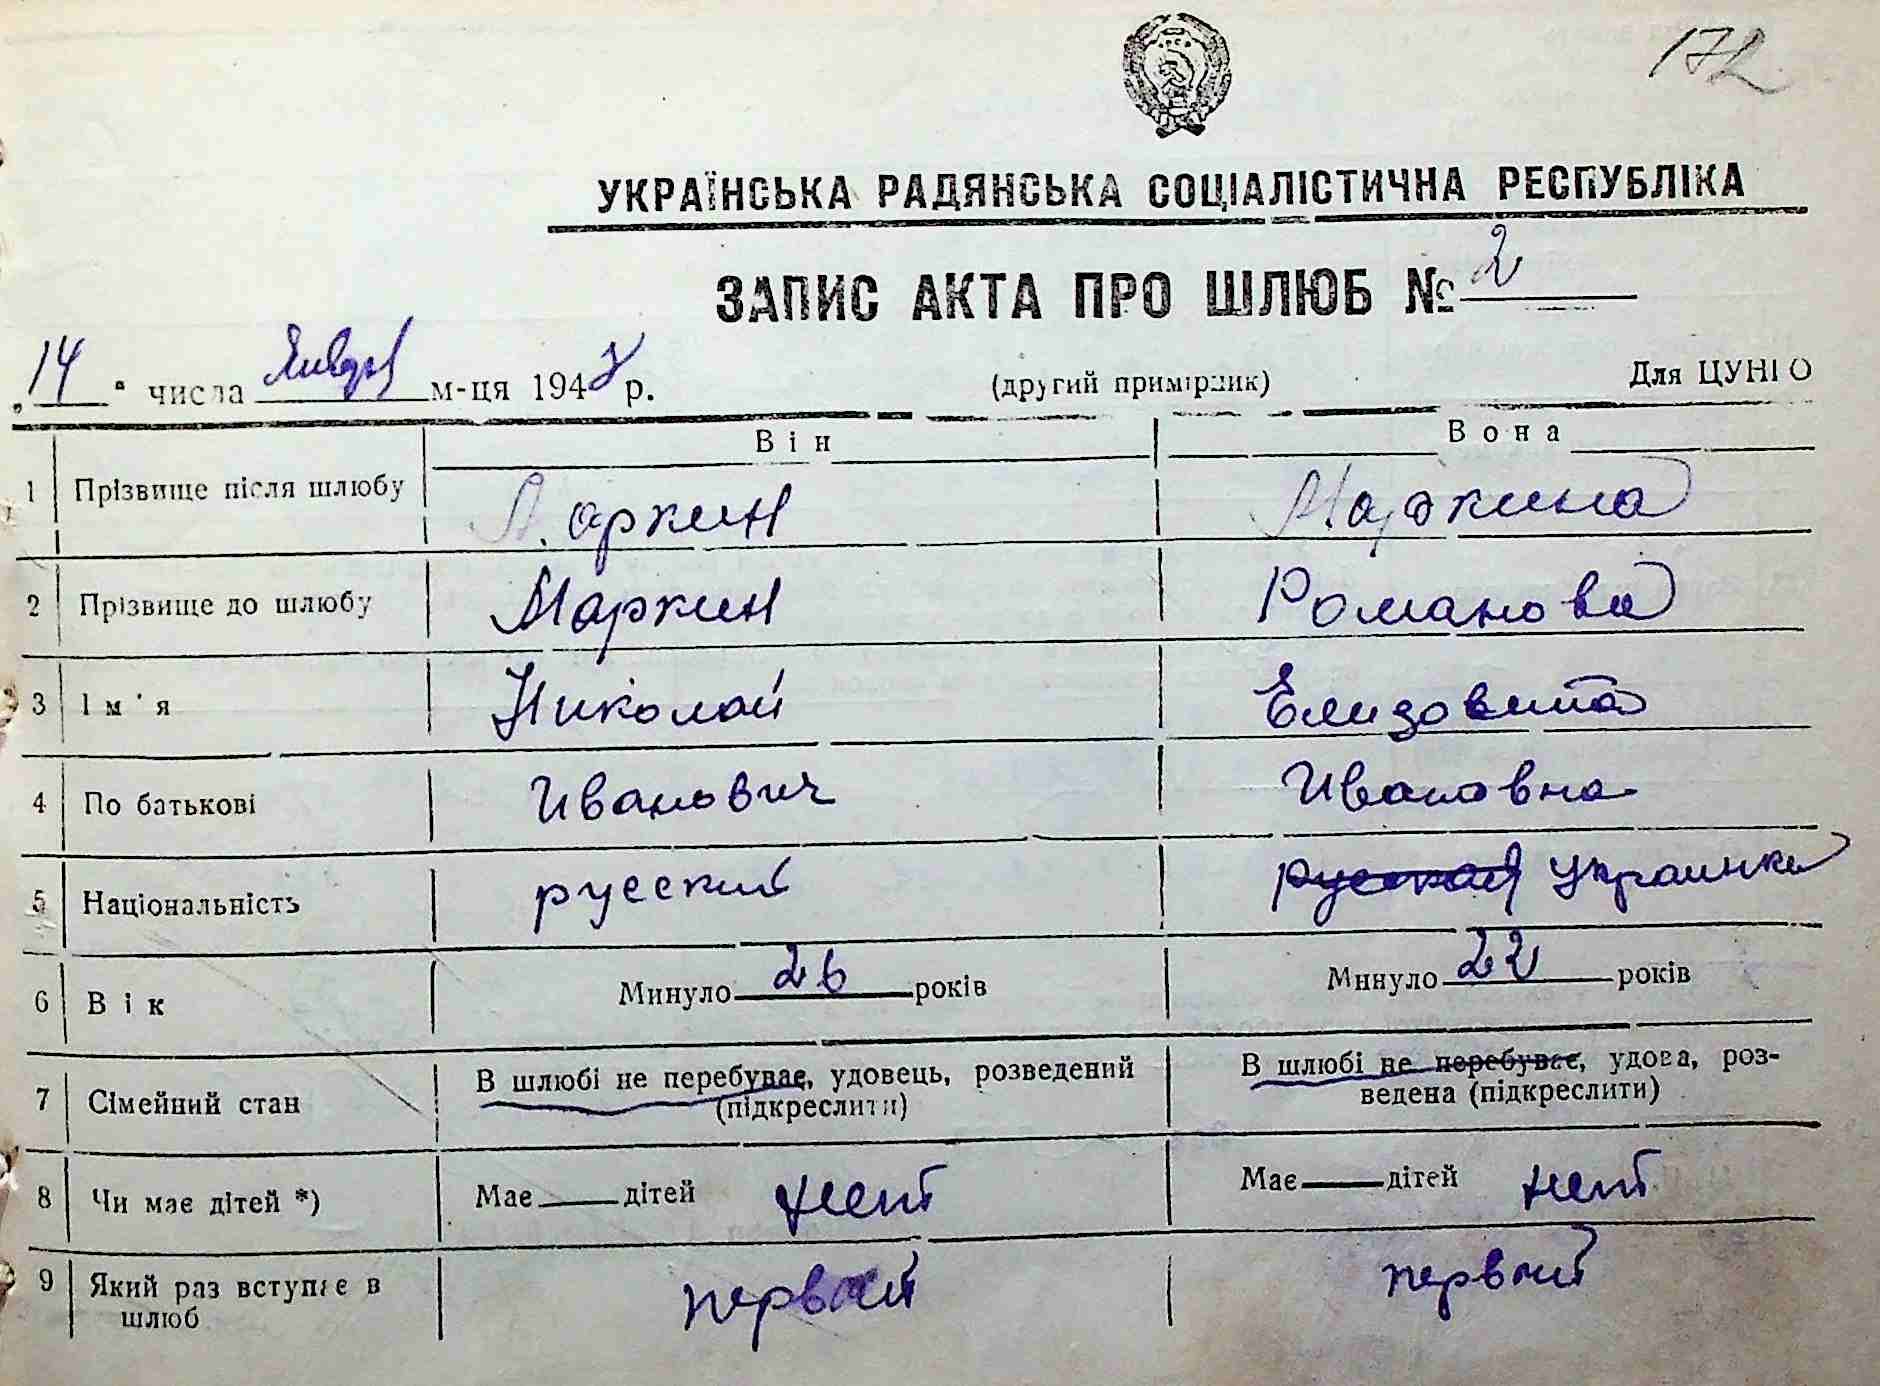 172
УКРАЇНСЬКА РАДЯНСЬКА СОЦІАЛІСТИЧНА РЕСПУБЛІКА
ЗАПИС АКТА ПРО ШЛЮБ № 2
„14" числа Января м-ця 194 р. (другий примірник) Для ЦУНГО
Він Вона
1 Прізвище після шлюбу Маркин Маркина
2 Прізвище до шлюбу Маркин Романова
3 Ім'я Николай Елизовита
4 По батькові Иванович Ивановна
5 Національність русский русская украинка
6 Вік Минуло 26 років Минуло 22 років
7 Сімейний стан В шлюбі не перебуває, удовець, розведений В шлюбі не перебуває, удова, роз-
(підкреслити) ведена (підкреслити)
8 Чи має дітей *) Має дітей нет Має дітей нет
9 Який раз вступає в первый первый
шлюб